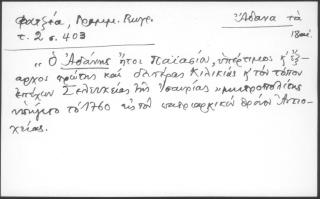 Φατζέα, Γραμμ. Κυρ. Ἄδανα τὰ
τ. 2 σ. 403 18αι.
"Ὁ Ἀδάνης ἤτοι Παϊασίου, ὑπέρτιμος κ ἔξ
αρχος πρώτης καὶ δευτέρας Κιλικίας κ τὸν τόπον
ἐπέχων Σελευκείας τῆς Ἰσαυρίας" μητροπολίτης
ὑπήγετο τὸ 1760 εἰς τὸν πατριαρχικὸν θρόνον Ἀντιο-
χείας.